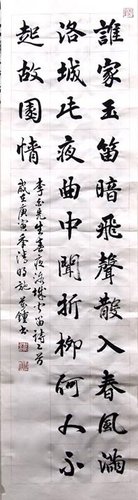 誰家玉笛暗飛聲散入春風滿
洛城此夜曲中聞折柳何人不
起故園情
李白先生春夜洛城聞笛詩一首
歲在庚寅春清明施景鐘書